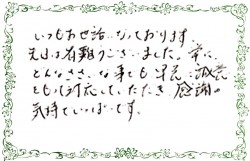 いつもお世話になっております。
先日は有難うございました。常に、
どんなささいな事でも早急に誠意
をもって対応していただき、感謝の
気持でいっぱいです。